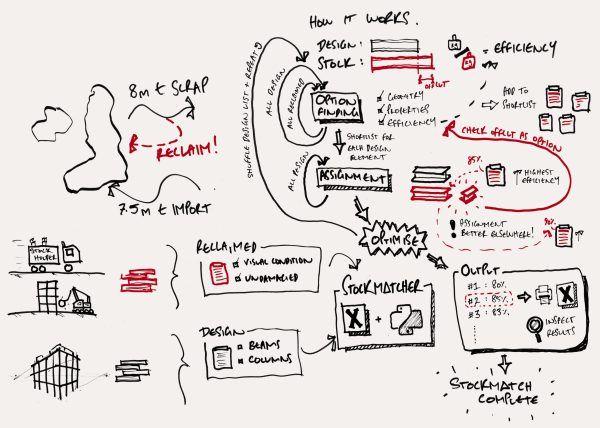 HOW IT WORKS.
DESIGN:
STOCK:
OFFCUT
= EFFICIENCY
8m t SCRAP
RECLAIM!
7.5m t IMPORT
SHUFFLE DESIGN LIST + REPEAT
ALL DESIGN
ALL RECLAIMED
OPTION
FINDING
GEOMETRY
PROPERTIES
EFFICIENCY
ADD TO
SHORTLIST
SHORTLIST FOR
EACH DESIGN
ELEMENT
CHECK OFFCUT AS OPTION
ALL DESIGN
ASSIGNMENT
85%
HIGHEST
EFFICIENCY
! ASSIGNMENT
BETTER ELSEWHERE!
90%
OPTIMISE
STOCK
HOLDER
RECLAIMED
VISUAL CONDITION
UNDAMAGED
DESIGN
BEAMS
COLUMNS
STOCKMATCHER
X +
OUTPUT
#1 : 80%
#2 : 85%
#3 : 83%
X
INSPECT
RESULTS
STOCKMATCH
COMPLETE